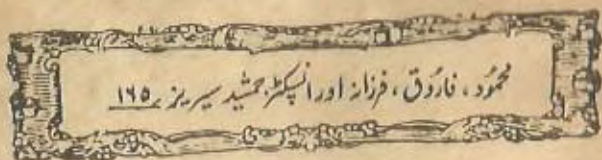 محمُود، فارُوق، فرزانہ اور انسپکٹر جمشید سیریز ۱۶۵